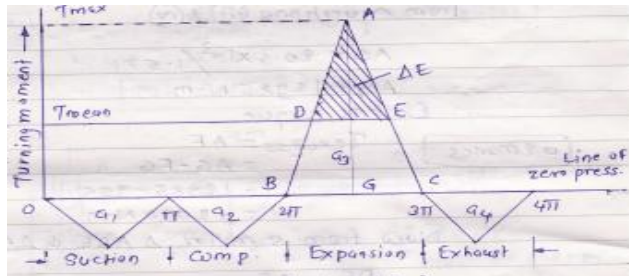 Tmax
A
Turning moment
ΔE
Tmean
D
E
a3
Line of
zero press.
B
G
C
O
a1
π
a2
2π
3π
a4
4π
Suction
Comp.
Expansion
Exhaust